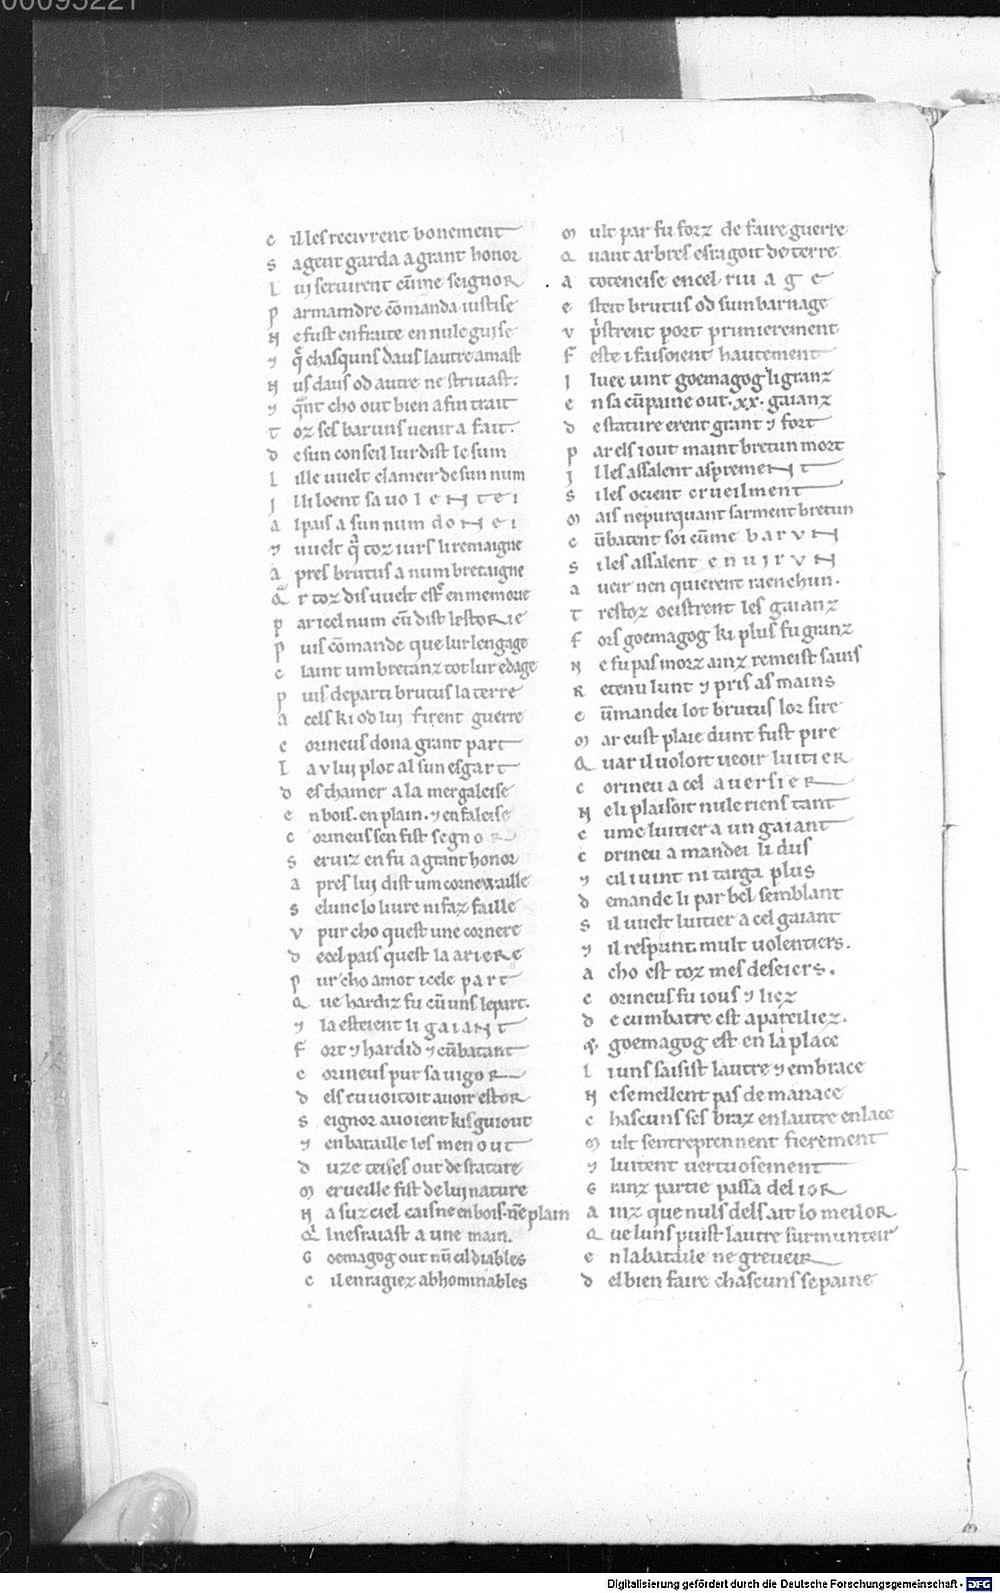 00095221
C il les recivrent bonement
S agent garda a grant honor
L ui servirent cū me seignor
P ar maindre cōmanda iustise
N e fust enfraite en nule guise
⁊ q̄ chasquns daus lautre amast
N us daus od autre ne strivast.
⁊ q̄nt cho out bien a fin trait
T oz ses baruns venir a fait.
D e sun conseil lur dist le sum
L ille vuelt clameir de sun num
I lli loent sa volentei
A l pais a sun num donei
⁊ vuelt q̄ toz iurs li remaigne
A pres brutus a num bretaigne
Q̄ r toz dis vuelt estr̄ en memorie
P ar icel num cū dist lestorie
P uis cōmande que lur lengage
C laint um bretanz tot lur edage
P uis departi brutus la terre
A cels ki od lui firent guerre
C orineus dona grant part
L a v lui plot al sun esgart
D es chamer a la mergaleise
E n bois. en plain. ⁊ en faleise
C orineus sen fist segnor
S erviz en fu a grant honor
A pres lui dist um cornewaille
S elunc lo livre ni faz faille
V pur cho quest une cornere
D ecel pais quest la ariere
P ur cho amot icele part
Q ue hardiz fu cū uns lepart.
⁊ la esteient li gaiant
F ort ⁊ hardid ⁊ cūbatant
C orineus pur sa vigor
D els cuvoitoit avoir estor
S eignor avoient kis guiout
⁊ en bataille les menout
D uze teises out de stature
M erueille fist de lui nature
N a suz ciel caisne en bois. ne plain
Q̄ l nesraiast a une main.
G oemagog out nū cil diables
C il enragiez abhominables
M ult par fu forz de faire guerre
Q uant arbres esragoit de terre
A toteneise en cel rivage
E steit brutus od suin barnage
V pristrent port primierement
F este i faisoient hautement
I luec vint goemagog li granz
E n sa cūpainie out .xx. gaianz
D e stature erent grant ⁊ fort
P ar els i out maint bretun mort
I l les assalent asprement
S i les ocient crueilment
M ais nepurquant sarment bretun
C ūbatent soi cūme barun
S i les assalent envirun
A veir nen quierent raenchun.
T restoz ocistrent les gaianz
F ors goemagog ki plus fu granz
N e fu pas morz ainz remeist sauis
R etenu lunt ⁊ pris as mains
C ūmandei lot brutus lor sire
M ar eust plaie dunt fust pire
Q uar il voloit veoir luitier
C orineu a cel aversier
N e li plaisoit nule riens tant
C ume luitier a un gaiant
C orineu a mandei li dus
⁊ cil i vint ni targa plus
D emande li par bel semblant
S il vuelt luitier a cel gaiant
⁊ il respunt mult volentiers.
A cho est toz mes deseiers.
C orineus fu ious ⁊ liez
D e cumbatre est apareiliez.
⁊ goemagog est en la place
L i uns saisist lautre ⁊ embrace
N e semellent pas de manace
C hascuns ses braz en lautre enlace
M ult sentreprennent fierement
⁊ luitent vertuosement
G ranz partie passa del ior
A inz que nuls dels ait lo meilor
Q ue luns puist lautre surmunteir
E n la bataile ne greveir
D el bien faire chascuns se paine
Digitalisierung gefördert durch die Deutsche Forschungsgemeinschaft - DFG